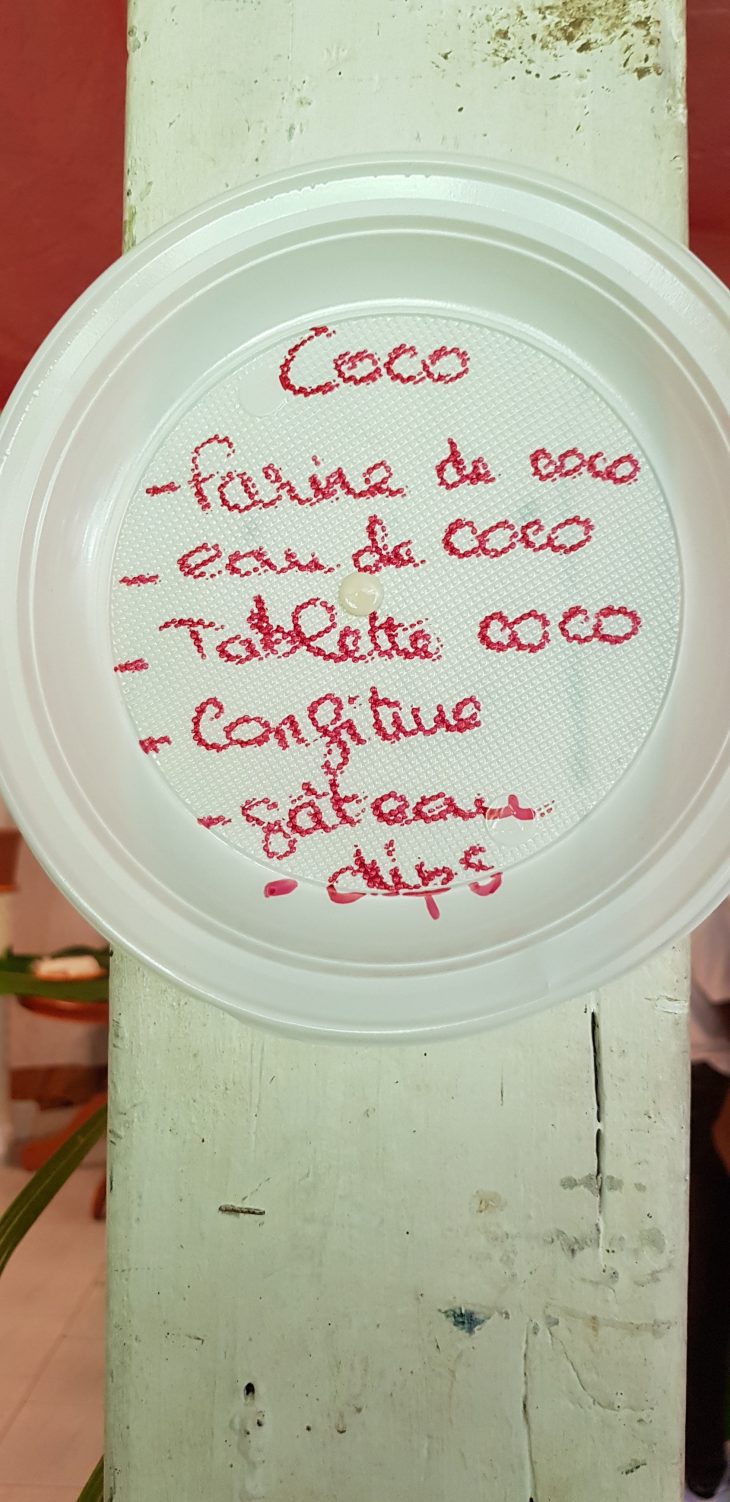 Coco
- farine de coco
- eau de coco
- Tablette coco
- Confiture
- gâteau
- chips